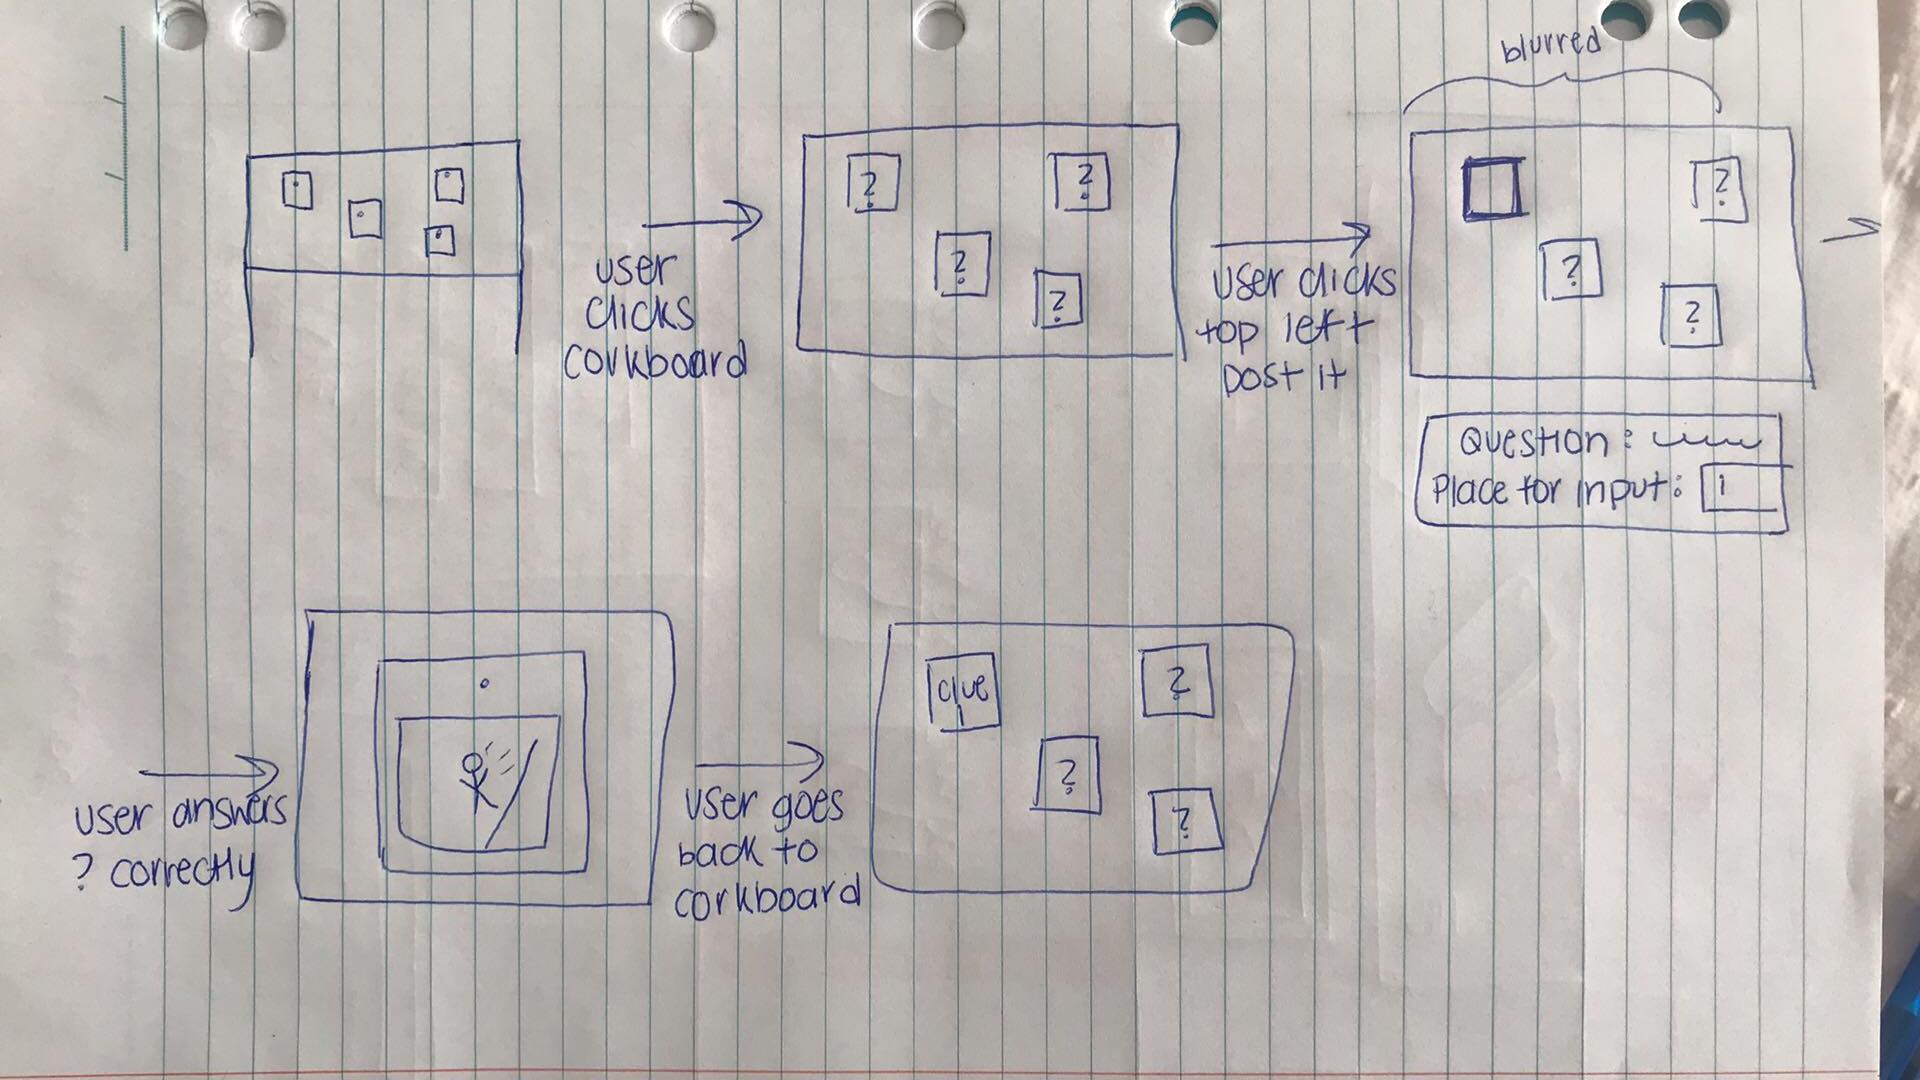 blurred
?
?
?
?
user
clicks
corkboard
user clicks
top left
post it
?
?
?
Question:
Place for input:
user answers
? correctly
user goes
back to
corkboard
clue
1
?
?
?